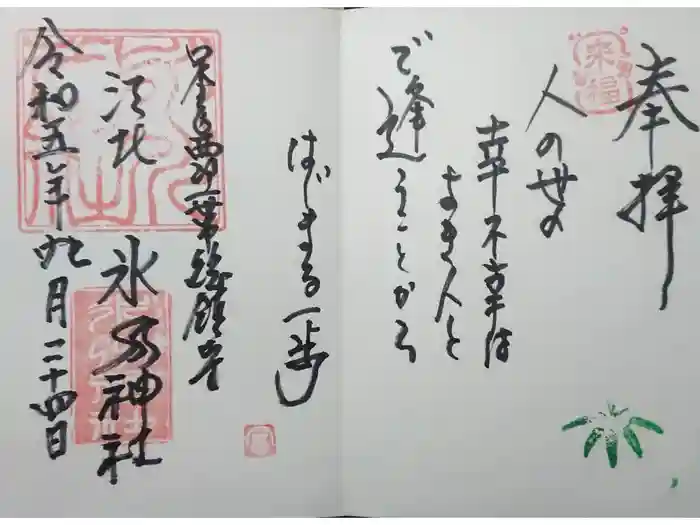 奉拝
来福
人の世の
幸不幸は
よき人と
で逢うことから
はじまる一歩
江北
氷川神社
令和五年九月二十四日